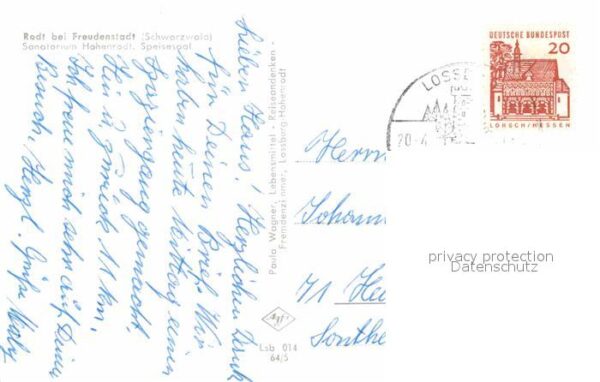 Rodt bei Freudenstadt (Schwarzwald)
Sanatorium Hohenrodt. Speisesaal.
Lieben Hans! Herzlichen Dank
für Deinen Brief. Wir
haben heute Mittag einen
Spaziergang gemacht.
Hin u. zurück 11 km.
Ich freue mich sehr auf Deinen
Besuch. Herzl. Grüße
Paula Wagner, Lebensmittel - Reiseandenken -
Fremdenzimmer, Lossburg-Hohenrodt
Lsb 014
64/5
Herrn
Johann
71 Hei
Sonthe
LOSS
20.-4
DEUTSCHE BUNDESPOST
20
LORSCH/HESSEN
privacy protection
Datenschutz